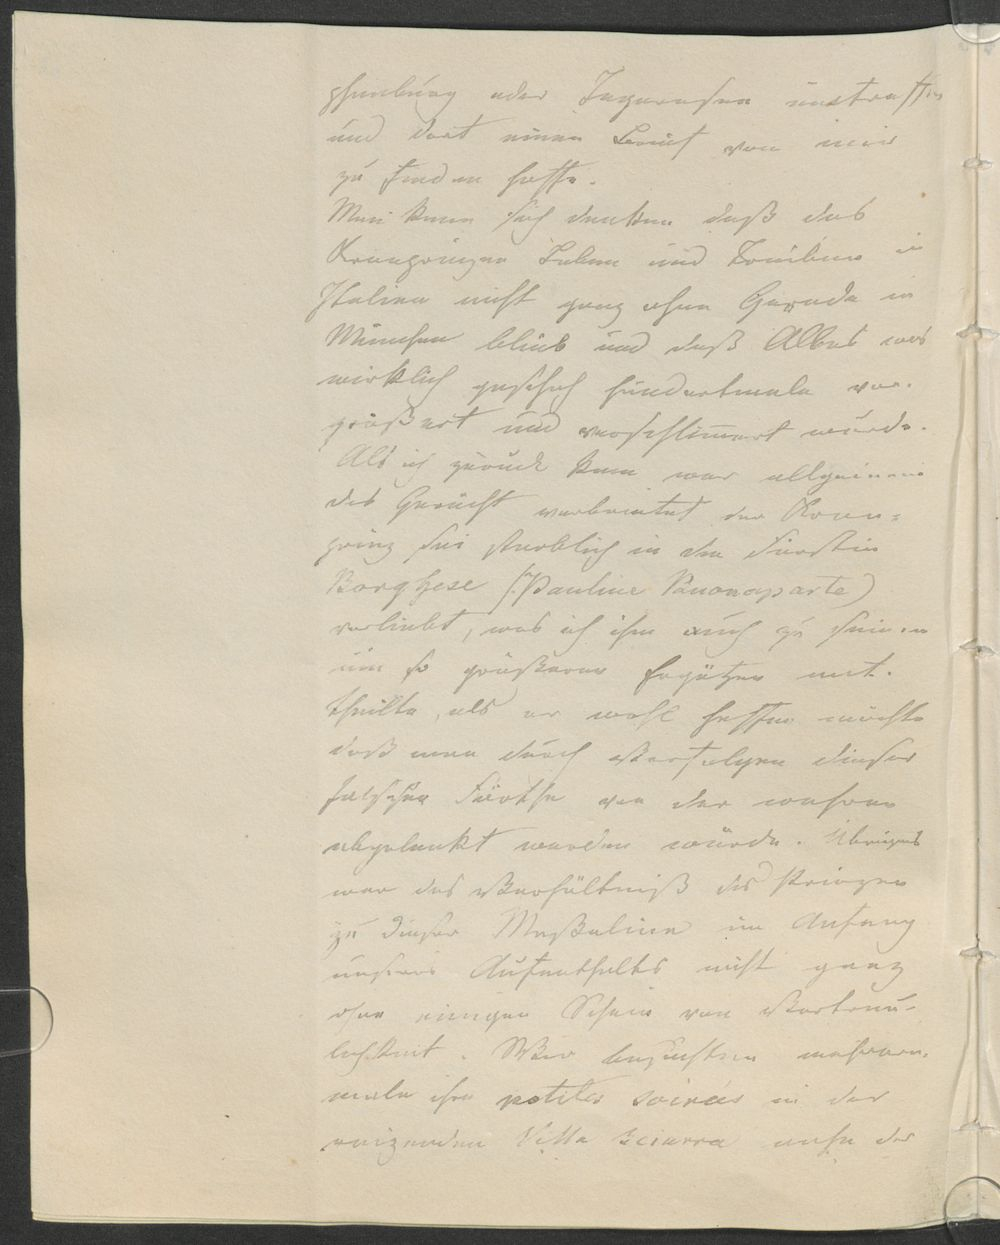 phenburg oder Tegernsee eintreffen
und dort einen Brief von mir
zu finden hoffe.
Man kann sich denken daß das
Kronprinzen Leben und Treiben in
Italien nicht ganz ohne Gerede in
München blieb und daß Alles was
wirklich geschah hundertmale ver-
größert und verschlimmert wurde.
Als ich zurück kam war allgemein
das Gerücht verbreitet der Kron=
prinz sei sterblich in die Fürstin
Borghese (: Pauline Buonaparte)
verliebt, was ich ihm auch zu seinem
um so größeren Ergötzen mit-
theilte, als er wohl hoffen mochte
daß man durch Verfolgen dieser
falschen Fährte von der wahren
abgelenkt werden würde. Übrigens
war das Verhältniß des Prinzen
zu dieser Meßaline im Anfang
unseres Aufenthalts nicht ganz
ohne einigen Schein von Vertrau-
lichkeit. Wir besuchten mehrere-
male ihre petites soirées in der
reizenden Villa Sciarra nahe der